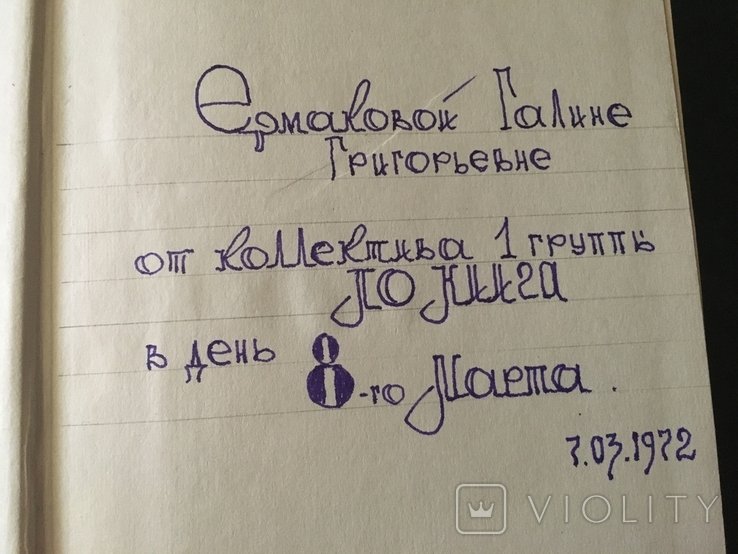 Ермаковой Галине
Григорьевне
от коллектива 1 группы
в день 8-го Марта.
7.03.1972
VIOLITY